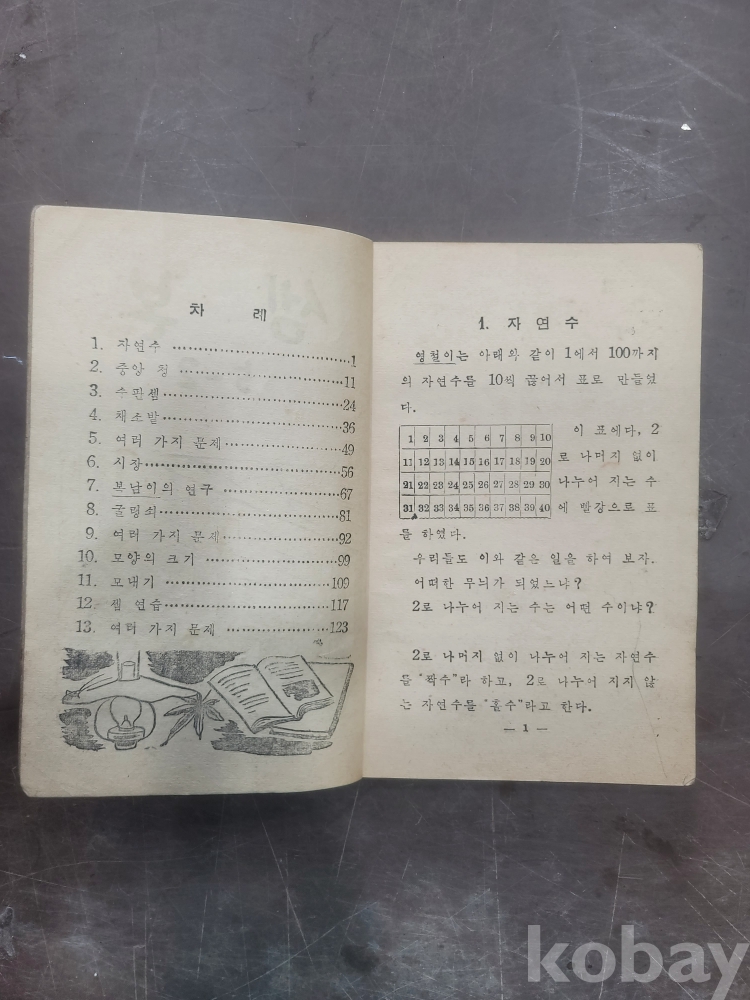 차 례
1. 자연수 ……………………1
2. 중앙 청 ……………………11
3. 수판셈 ……………………24
4. 채소밭 ……………………36
5. 여러 가지 문제 ……………49
6. 시장 ………………………56
7. 복남이의 연구 ……………67
8. 굴렁쇠 ……………………81
9. 여러 가지 문제 ……………92
10. 모양의 크기 ………………99
11. 모내기 ……………………109
12. 셈 연습 ……………………117
13. 여러 가지 문제 ……………123
1. 자 연 수
영철이는 아래와 같이 1에서 100까지
의 자연수를 10씩 끊어서 표로 만들었
다.
1 2 3 4 5 6 7 8 9 10
11 12 13 14 15 16 17 18 19 20
21 22 23 24 25 26 27 28 29 30
31 32 33 34 35 36 37 38 39 40
이 표에다, 2
로 나머지 없이
나누어 지는 수
에 빨강으로 표
를 하였다.
우리들도 이와 같은 일을 하여 보자.
어떠한 무늬가 되었느냐?
2로 나누어 지는 수는 어떤 수이냐?
2로 나머지 없이 나누어 지는 자연수
를 "짝수"라 하고, 2로 나누어 지지 않
는 자연수를 "홀수"라고 한다.
— 1 —
kobay